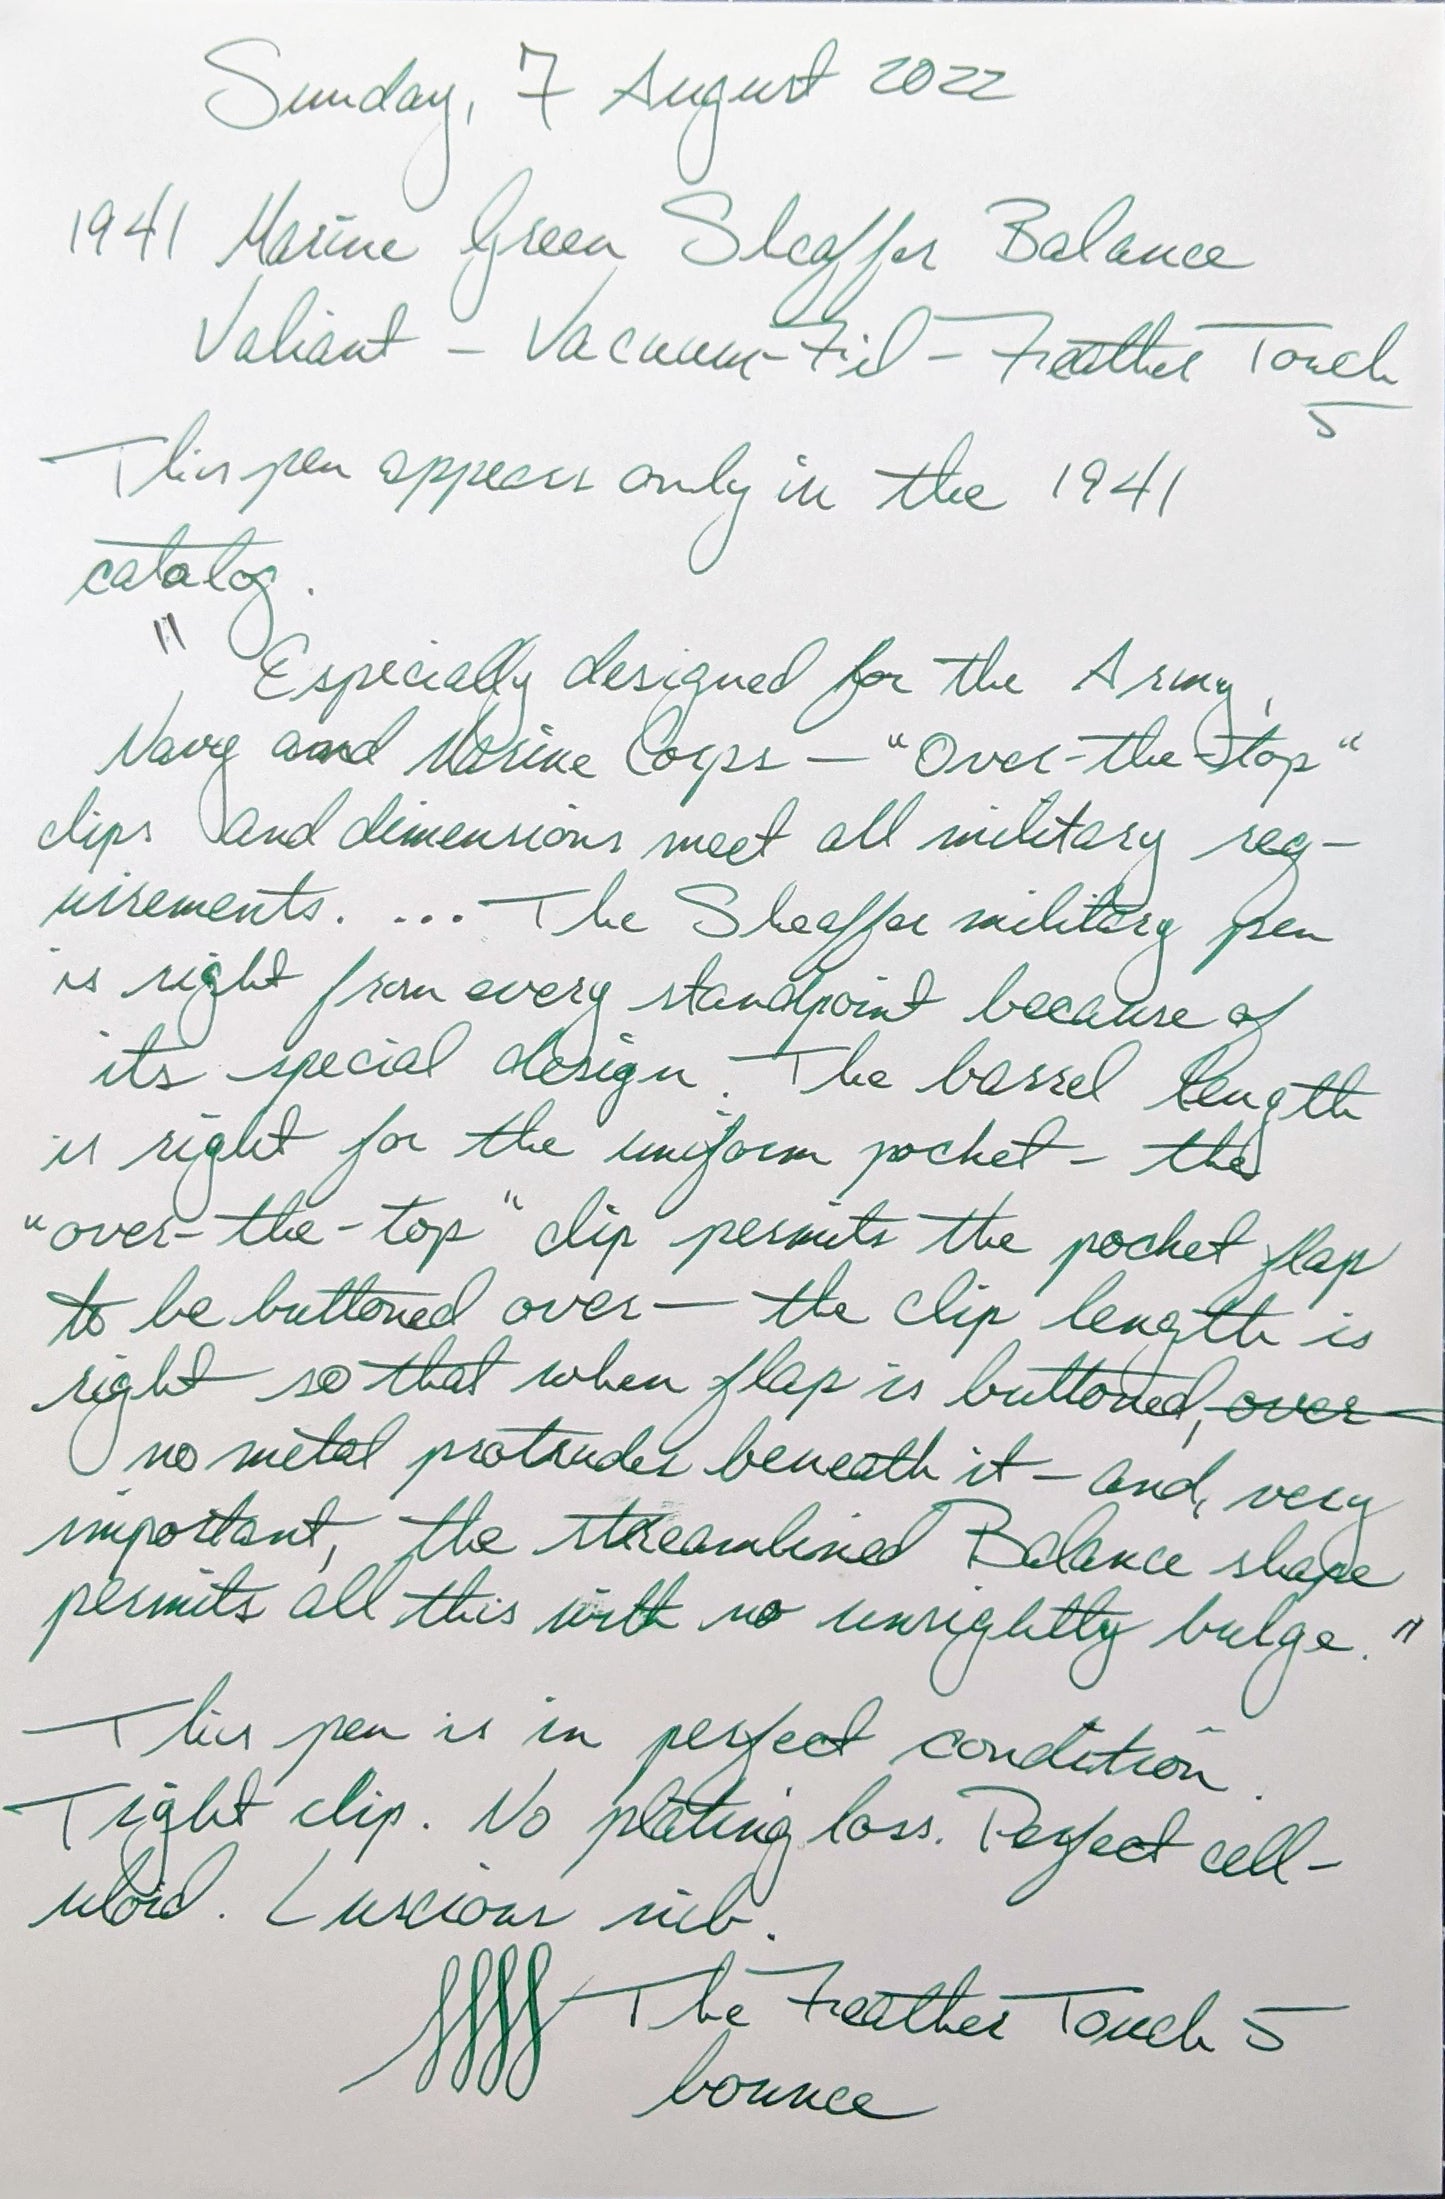 Sunday, 7 August 2022
1941 Marine Green Sheaffer Balance
Valiant – Vacuum-Fil – Feather Touch
5
This pen appears only in the 1941
catalog.
" Especially designed for the Army,
Navy and Marine Corps — "Over-the-top"
clips and dimensions meet all military req-
uirements. ... The Sheaffer military pen
is right from every standpoint because of
its special design. The barrel length
is right for the uniform pocket – the
"over-the-top" clip permits the pocket flap
to be buttoned over — the clip length is
right so that when flap is buttoned, ~~over~~
no metal protrudes beneath it – and, very
important, the streamlined Balance shape
permits all this with no unsightly bulge."
This pen is in perfect condition.
Tight clip. No plating loss. Perfect cell-
uloid. Luscious nib.
The Feather Touch 5
bounce